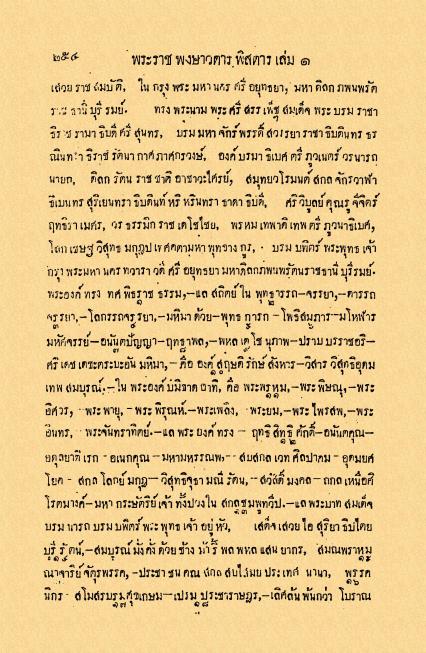 ๒๕๔ พระราช พงษาวดาร พิสดาร เล่ม ๑
เสวย ราช สมบัติ, ใน กรุง พระ มหา นคร ศรี อยุทธยา, มหา ดิลก ภพนพรัต
ราช ธานี บุรี รมย์. ทรง พระนาม พระ ศรี สรร เพ็ชฐ สมเด็จ พระ บรม ราชา
ธิราช รามา ธิบดี ศรี สุนทร, บรม มหา จักร์ พรรดิ์ สวรรยา ราชา ธิบดินทร ธร
ณินทรา ธิราช รัตนา กาศ ภาศกรวงษ์, องค์ บรมา ธิเบศ ตรี ภูวเนตร์ วรนารถ
นายก, ดิลก รัตน ราช ชาติ อาชาวะไศรย์, สมุทยวโรมนต์ สกล จักรวาฬา
ธิเบนทร สุริเยนทรา ธิบดินท์ หริ หรินทรา ธาดา ธิบดี, ศรี วิบูลย คุณรุจิจิตร์
ฤทธิรา เมศร, วร ธรรมิก ราช เดโชไชย, พรหม เทพาดิ เทพ ตรี ภูวนาธิเบศ,
โลก เชษฐ วิสุทธ มกุฎป เทศคตามหา พุทธาง กูร, บรม บพิตร์ พระพุทธ เจ้า
กรุง พระมหา นคร ทวารา วดี ศรี อยุทธยา มหาดิลกภพนพรัตนราชธานี บุรีรมย์.
พระองค์ ทรง ทศ พิธราช ธรรม,–แล สถิตย์ ใน พุทธารถ–จรรยา,–ดารรถ
จรรยา,–โลกรรถจรรยา,–มหิมา ด้วย–พุทธ การก–โพธิสมภาร–มโหฬาร
มหัศจรรย์–อนันตปัญญา–ฤทธาพล,–พหล เดโช นุภาพ–ปราบ บรราชอริ–
ศรี เดช เดชะตระบะอัน มหิมา,–คือ องค์ สฤษดิ รักษ์ สังหาร–วิสาร วิสุทธิอุดม
เทพ สมบูรณ์.–ใน พระองค์ บมิขาด อาทิ, คือ พระพรหม,–พระ พิษณุ,–พระ
อิศวร, พระ พายุ,–พระ พิรุณห์.–พระเพลิง, พระยม,–พระ ไพรสพ,–พระ
อินทร, พระจันทราทิตย์.–แล พระ ยงค์ ทรง–ฤทธิ สิทธิ ศักดิ์–อนันตคุณ–
อดุลยาดิ เรก–อเนกคุณ–มหามหรรณพ,–สบสกล เวท ศิลปาคม–อุดมยศ
โยค–สกล โลกย์ มกุฎ–วิสุทธิจุธา มณี รัตน,–สวัสดิ์ มงคล–ถกล เหนือศิ
โรตมางค์–มหา กระษัตริย์ เจ้า ทั้งปวงใน สกลชมพูทวีป.–แล พระบาท สมเด็จ
บรม นารถ บรม บพิตร์ พระ พุทธ เจ้า อยู่ หัว, เสด็จ เสวย ไอ สุริยา ธิบไตย
บุรี รัตน์,–สมบูรณ์ มั่ง คั่ง ด้วย ช้าง ม้า รี้ พล พหล แสน ยากร, สมณพราหม
ณาจาริย์ จัตุรพรรค,–ประชา ชน คณ สกล สบไสมย ประเทศ นานา, พรรค
นิกร–สโมสรบรมศุขเกษม–เปรม ประชาราษฎร,–เลิศล้น พ้นกว่า โบราณ